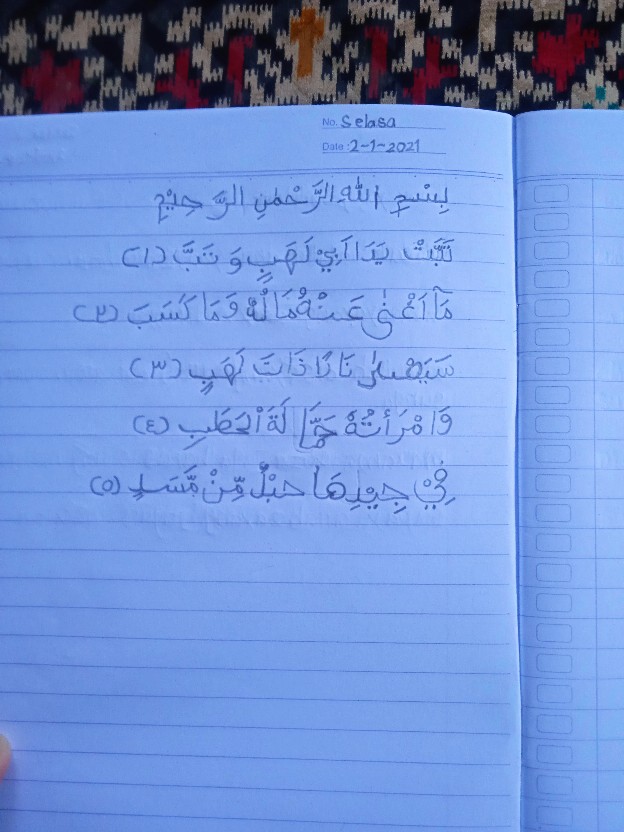 No. Selasa
Date : 2-1-2021
بِسْمِ اللهِ الرَّحْمٰنِ الرَّحِيْمِ
تَبَّتْ يَدَا اَبِيْ لَهَبٍ وَ تَبَّ (١)
مَآ اَغْنٰى عَنْهُ مَا لُهٗ وَمَا كَسَبَ (٢)
سَيَصْلٰى نَارًا ذَاتَ لَهَبٍ (٣)
وَامْرَأَتُهٗ حَمَّا لَةَ الْحَطَبِ (٤)
فِيْ جِيْدِهَا حَبْلٌ مِّنْ مَّسَدٍ (٥)